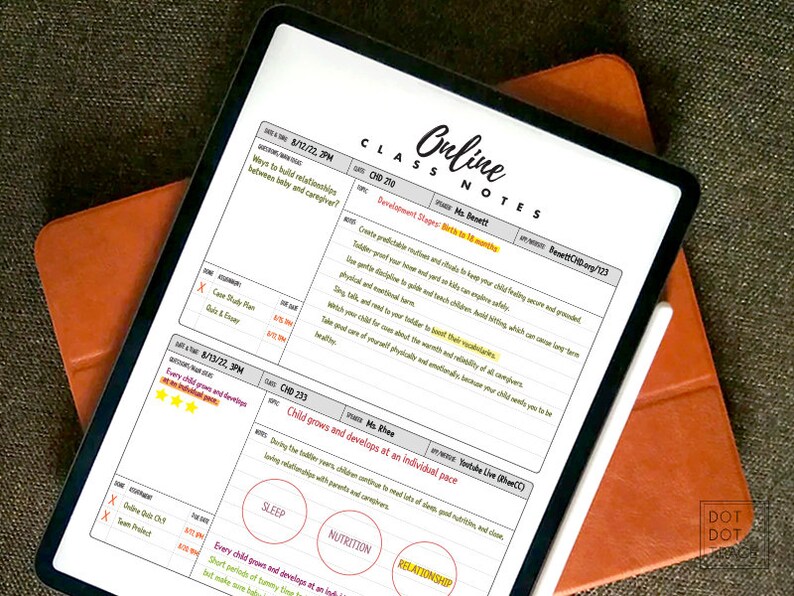 Online
CLASS NOTES
DATE & TIME: 8/12/22, 2PM
CLASS: CHD 210
SPEAKER: Ms. Benett
APP/WEBSITE: BenettCHD.org/123
QUESTIONS/MAIN IDEAS
Ways to build relationships
between baby and caregiver?
TOPIC
Development Stages: Birth to 18 months
NOTES
Create predictable routines and rituals to keep your child feeling secure and grounded.
Toddler-proof your home and yard so kids can explore safely.
Use gentle discipline to guide and teach children. Avoid hitting, which can cause long-term
physical and emotional harm.
Sing, talk, and read to your toddler to boost their vocabularies.
Watch your child for cues about the warmth and reliability of all caregivers.
Take good care of yourself physically and emotionally, because your child needs you to be
healthy.
DONE ASSIGNMENT DUE DATE
X Case Study Plan 8/15, 1PM
Quiz & Essay 8/17, 1PM
DATE & TIME: 8/13/22, 3PM
CLASS: CHD 233
SPEAKER: Ms. Rhee
APP/WEBSITE: Youtube Live (RheeCC)
QUESTIONS/MAIN IDEAS
Every child grows and develops
at an individual pace.
TOPIC
Child grows and develops at an individual pace
NOTES
During the toddler years, children continue to need lots of sleep, good nutrition, and close,
loving relationships with parents and caregivers.
SLEEP
NUTRITION
RELATIONSHIP
DONE ASSIGNMENT DUE DATE
X Online Quiz Ch.9 8/17, 1PM
X Team Project 8/20, 1PM
Every child grows and develops at an
Short periods of tummy time
but make sure
DOT
DOT